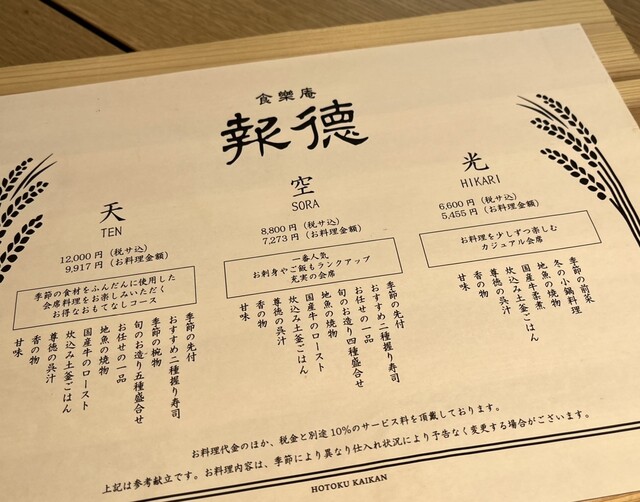 食樂庵
報徳
天
TEN
12,000円（税サ込）
9,917円（お料理金額）
季節の食材をふんだんに使用した
会席料理をお楽しみいただく
お得なおもてなしコース
季節の先付
おすすめ二種握り寿司
季節の椀物
旬のお造り五種盛合せ
お任せの一品
地魚の焼物
国産牛のロースト
炊込み土釜ごはん
尊徳の呉汁
香の物
甘味
空
SORA
8,800円（税サ込）
7,273円（お料理金額）
一番人気
お刺身やご飯もランクアップ
充実の会席
季節の先付
おすすめ二種握り寿司
お任せの一品
旬のお造り四種盛合せ
地魚の焼物
国産牛のロースト
炊込み土釜ごはん
尊徳の呉汁
香の物
甘味
光
HIKARI
6,600円（税サ込）
5,455円（お料理金額）
お料理を少しずつ楽しむ
カジュアル会席
季節の前菜
冬の小鍋料理
地魚の焼物
国産牛柔煮
炊込み土釜ごはん
尊徳の呉汁
香の物
甘味
お料理代金のほか、税金と別途10%のサービス料を頂戴しております。
上記は参考献立です。お料理内容は、季節により異なり仕入れ状況により予告なく変更する場合がございます。
HOTOKU KAIKAN